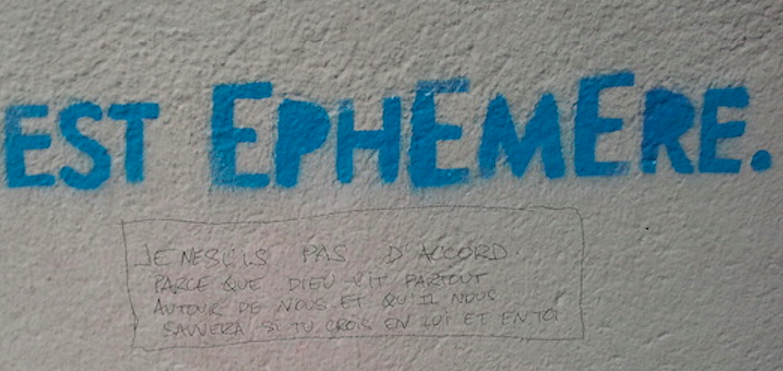 EST EPHEMERE.
JE NE SUIS PAS D'ACCORD.
PARCE QUE DIEU VIT PARTOUT
AUTOUR DE NOUS ET QU'IL NOUS
SAUVERA SI TU CROIS EN LUI ET EN TOI